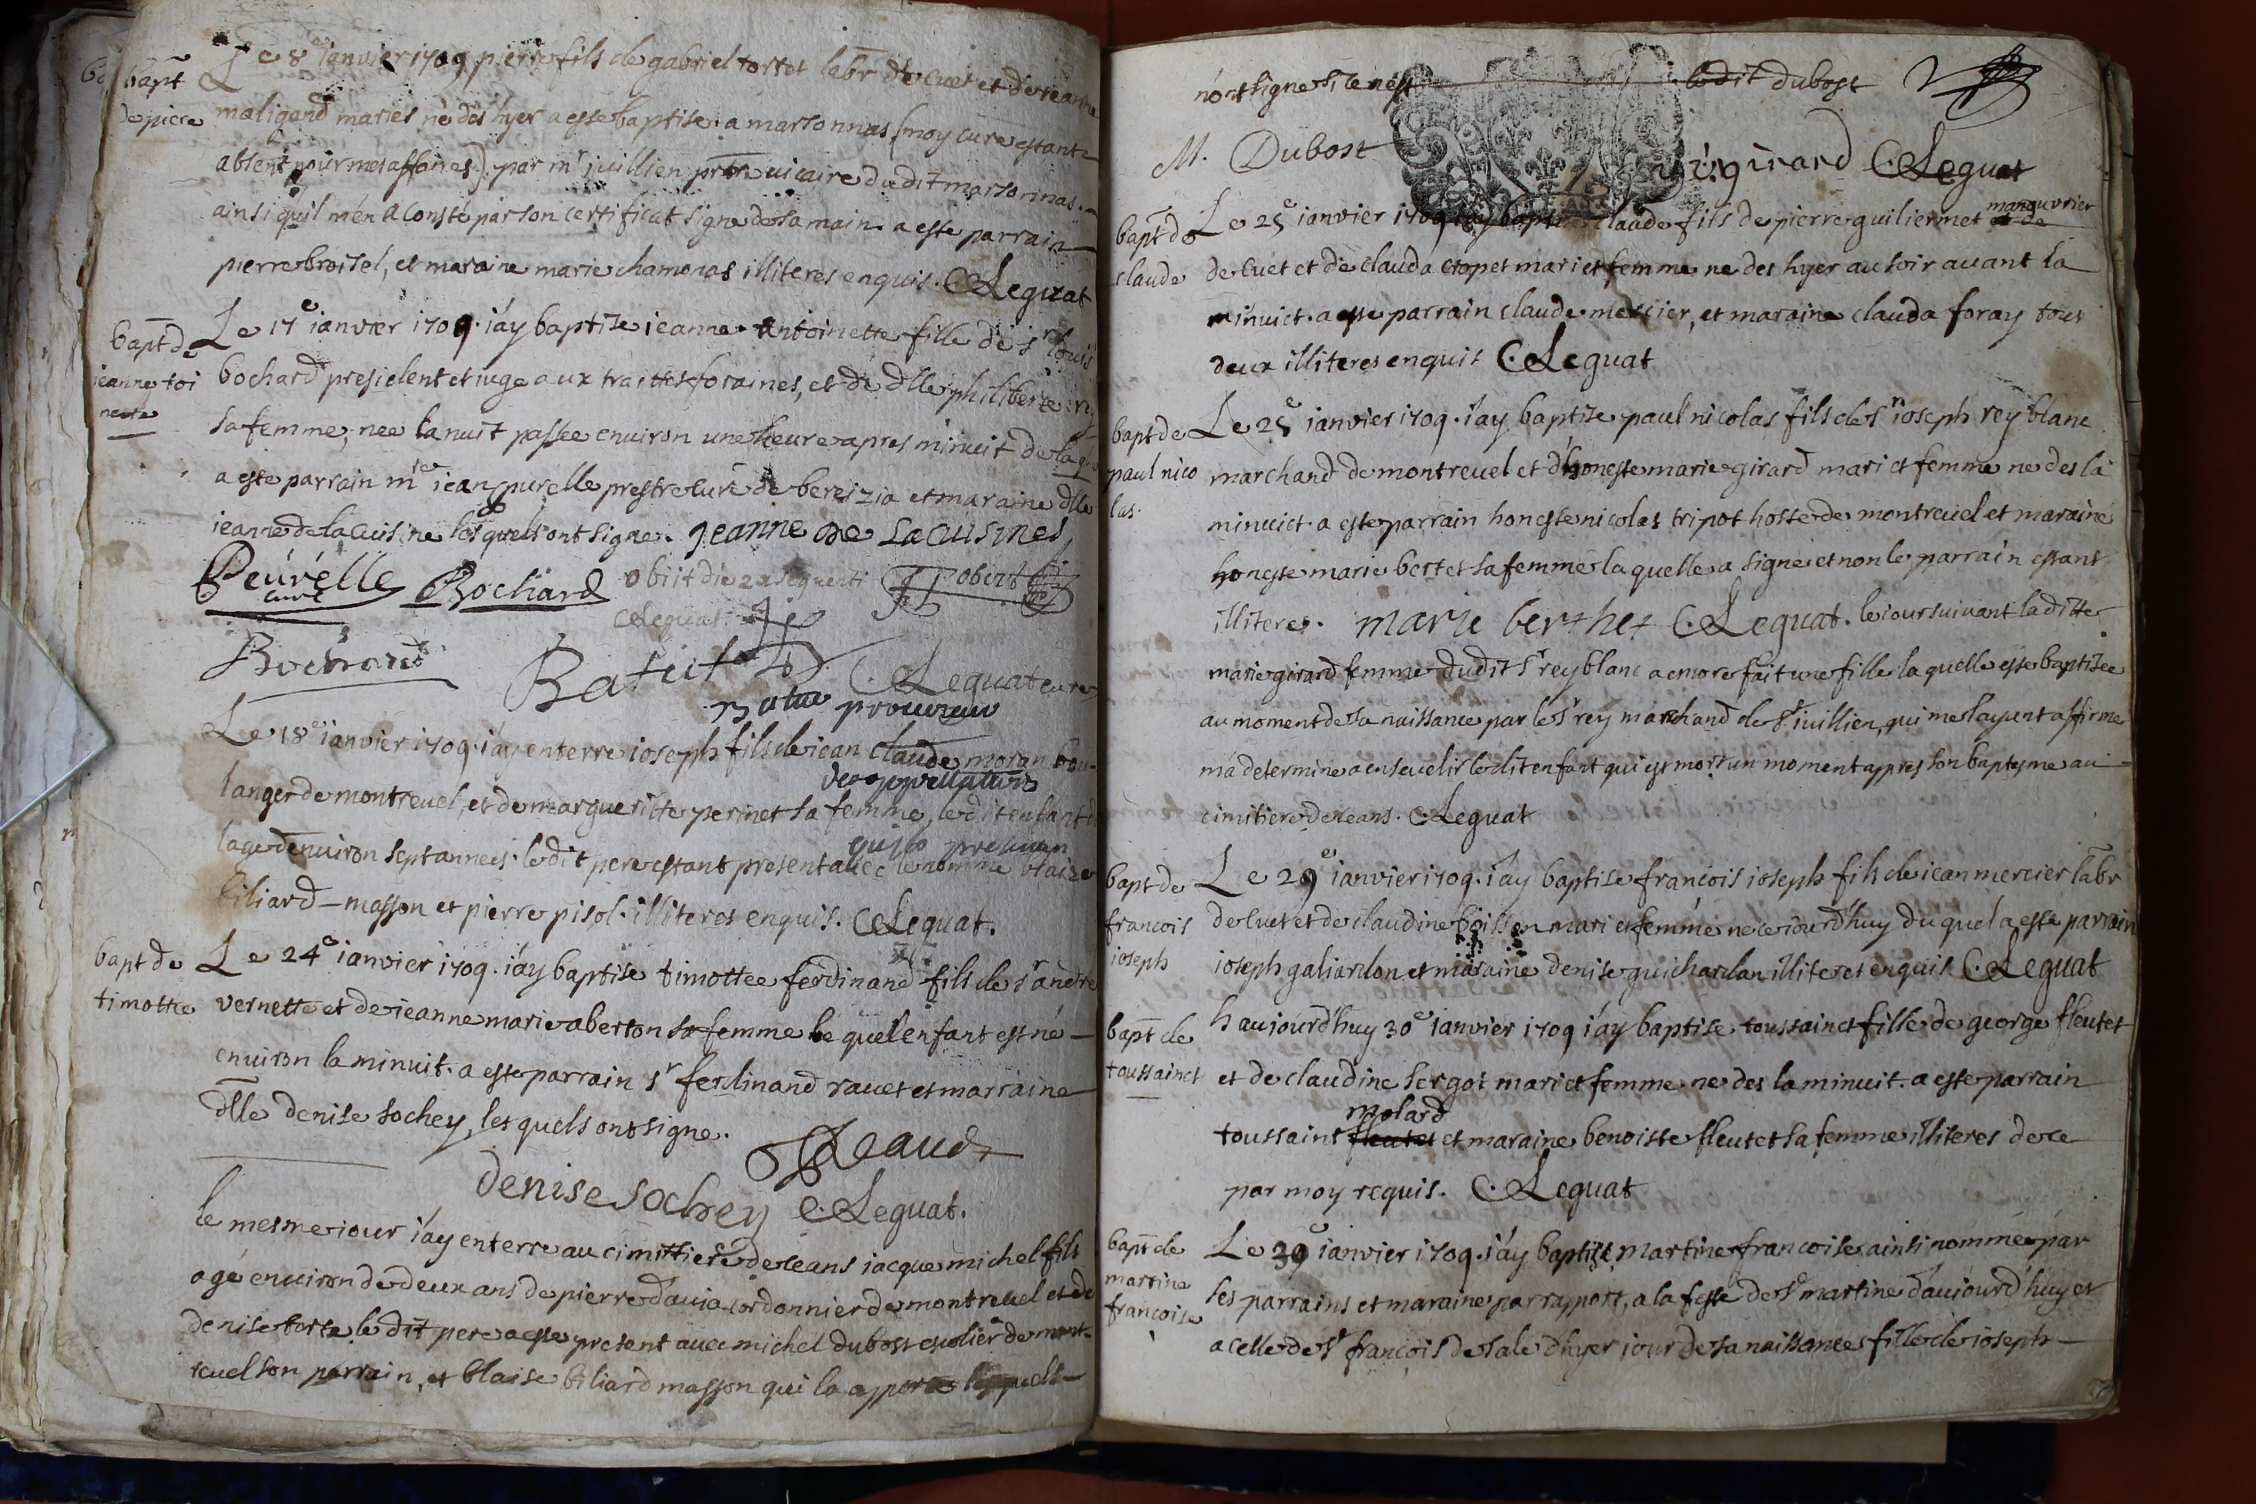 bapt
de piere
Le 8e ianvier 1709 pierre fils de gabriel tortet labr de cuet et de jeanne
maligend mariés né dès hyer a esté baptise a marsonnas (moy curé estant
absent pour mes affaires) par mr juillien prtre vicaire dudit marsonnas
ainsi quil m'en a consté par son certificat signé de sa main a esté parrain
pierre broisel, et maraine marie chamonas illiteres enquis. C. Leguat
bapt de
jeanne toi
nette
Le 17e ianvier 1709. i'ay baptise ieanne antoinette fille de sr louis
bochard president et iuge aux traittes foraines, et de dlle philiberte
sa femme, nee la nuit passée environ une heure apres minuit de la
a esté parrain mre iean peurelle prestre curé de bereizia et maraine dlle
jeanne de la cuisine lesquels ont signé. Jeanne de Lacuisines
Peurélle Bochard obiit die 22 sequenti Robert
curé C Leguat
Bochard Batut C. Leguat curé
procureur
Le 18e ianvier 1709. i'ay enterre ioseph fils de iean claude moran bou-
langer de montrevel, et de marguerite perinet sa femme, ledit enfant
lage denviron sept annees. ledit pere estant present avec le nommé blaize
biliard masson et pierre pisol. illiteres enquis. C Leguat.
bapt de
timottee
Le 24e ianvier 1709. i'ay baptise timottee ferdinand fils de sr andre
vernette et de jeanne marie aberton sa femme le quel enfant est né
environ la minuit. a esté parrain sr ferdinand ravet et marraine
dlle denise sochey, les quels ont signé.
denise sochey C. Leguat.
le mesme iour i'ay enterre au cimittiere de ceans iacque michel fils
agé environ de deux ans de pierre davia cordonnier de montrevel et de
denise torte le dit pere a esté present avec michel dubost escolier de mont-
revel son parrain, et blaise biliard masson qui la apporté lesquels
n'ont signé si ce n'est ledit dubost
M. Dubost girard C. Leguat
bapt de
claude
Le 25e ianvier 1709 i'ay baptise claude fils de pierre guiliermet manouvrier
de cuet et de clauda cropet mari et femme né des hyer au soir avant la
minuict. a esté parrain claude mercier, et maraine clauda foray tous
deux illiteres enquis C. Leguat
bapt de
paul nico
las.
Le 25e ianvier 1709. i'ay baptise paul nicolas fils de sr ioseph rey blanc
marchand de montrevel et d'honeste marie girard mari et femme né des la
minuict. a esté parrain honeste nicolas tripot hoste de montrevel et maraine
honeste marie bertet sa femme la quelle a signé et non le parrain estant
illitere. marie berthet C. Leguat. le iour suivant la ditte
marie girard femme dudit sr rey blanc a encore fait une fille la quelle esté baptisée
au moment de sa naissance par le sr rey marchand de st iuillien, qui me layant affirmé
m'a determine a ensevelir ledit enfant qui est mort un moment appres son baptesme au
cimitiere de ceans. C. Leguat
bapt de
francois
ioseph
Le 29e ianvier 1709. i'ay baptise francois ioseph fils de iean mercier labr
de cuet et de claudine boisson mari et femme né ce iourd'huy du quel a esté parrain
ioseph galiardon et maraine denise guichardan illiteres enquis C. Leguat
bapt de
toussainct
haujourd'huy 30e ianvier 1709 i'ay baptise toussainct fille de george fleutet
et de claudine sergot mari et femme ne des la minuit. a esté parrain
molard
toussaint fleutet et maraine benoiste fleutet sa femme illiteres de ce
par moy requis. C. Leguat
bapt de
martine
francoise
Le 30e ianvier 1709. i'ay baptize martine francoise ainsi nommée par
ses parrains et maraine par rapport, a la feste de ste martine d'aujourd'huy et
a celle de st françois de sale d'hyer iour de sa naissance fille de ioseph